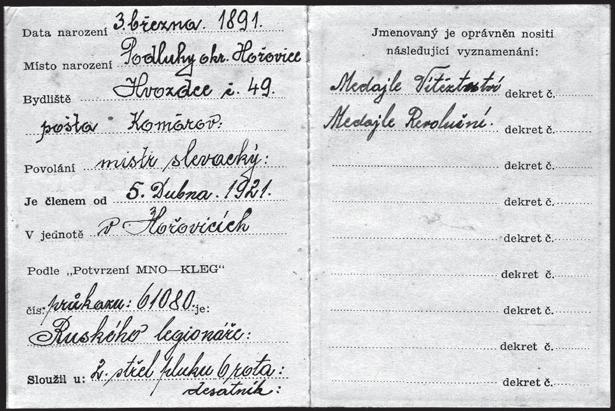 Data narození 3. března. 1891.
Místo narození Podluhy okr. Hořovice
Bydliště Hvozdec č. 49.
pošta Komárov:
Povolání mistr slevacký:
Je členem od 5. Dubna. 1921.
V jednotě v Hořovicích
Podle „Potvrzení MNO—KLEG"
čís: průkazu: 61080. je:
Ruského legionáře:
Sloužil u: 2. střel pluku 6 rota:
desatník:
Jmenovaný je oprávněn nositi
následující vyznamenání:
Medajle Vítězství dekret č.
Medajle Revoluční. dekret č.
dekret č.
dekret č.
dekret č.
dekret č.
dekret č.
dekret č.
dekret č.
dekret č.